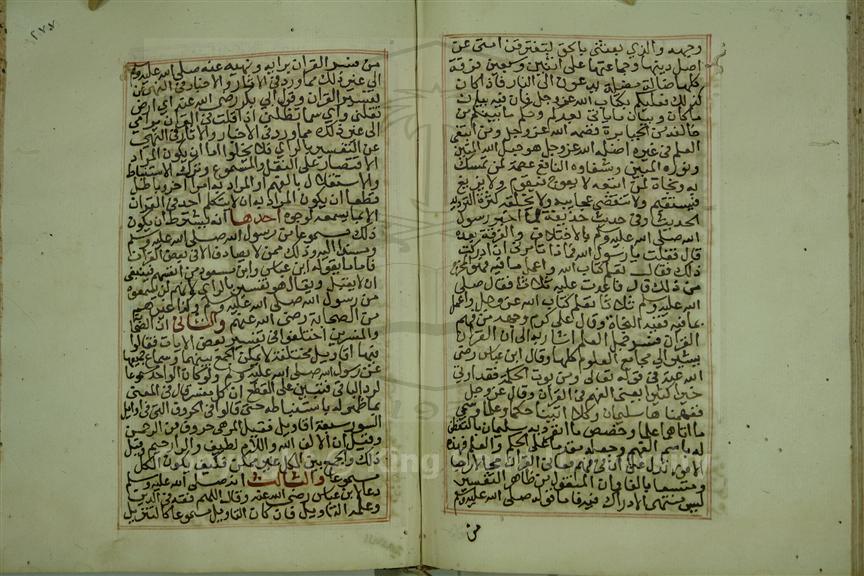 وجهه والذي بعثني بالحق لتفترقن امتي عن
اصل دينها وجماعتها على اثنتين وسبعين فرقة
كلها ضالة مضلة يدعون الى النار فاذا كان
ذلك فعليكم بكتاب الله عز وجل فان فيه بيان
ما كان وبيان ما ياتي بعدكم وحكم ما بينكم من
خالفه من الجبابرة قصمه الله عز وجل ومن ابتغى
العلم في غيره اضله الله عز وجل هو حبل الله المتين
ونوره المبين وشفاوه النافع عصمة لمن تمسك
به ونجاة لمن اتبعه لا يعوج فيقوم ولا يزيغ
فيستقيم ولا تنقضي عجايبه ولا يخلقه كثرة الترديد
الحديث وفي حديث حذيفة لما اخبر رسول
الله صلى الله عليه وسلم بالاختلاف والفرقة بعده
قال فقلت يا رسول الله فماذا تامرني ان ادركت
ذلك فقال تعلم كتاب الله واعمل بما فيه فهو المخرج
من ذلك قال فاعدت عليه ثلاثا فقال صلى
الله عليه وسلم ثلاثا تعلم كتاب الله عز وجل واعمل
بما فيه ففيه النجاة وقال علي كرم وجهه من فهم
القران فسر جمل العلم اشار به الى ان القران
يشير الى مجامع العلوم كلها وقال ابن عباس رضي
الله عنه في قوله تعالى ومن يوت الحكمة فقد اوتي
خيرا كثيرا يعني الفهم في القران وقال عز وجل
ففهمناها سليمان وكلا اتينا حكما وعلما وسمي
ما اتاهما علما وخصص ما انفرد به سليمان بالتفطن
له باسم الفهم وجعله مقدما على الحكم والعلم فهذه
الامور تدل على ان في فهم معاني القران مجالا رحبا
ومتسعا بالغا وان المنقول من ظاهر التفسير
ليس منتهى الادراك فيه فاما قوله صلى الله عليه وسلم
من
٢٧٧
من فسر القران برايه ونهيه عنه صلى الله عليه وسلم
الى غير ذلك مما ورد في الاخبار والاثار في النهي عن
تفسير القران وقول ابي بكر رضي الله عنه اي ارض
تقلني واي سما تظلني اذا قلت في القران برايي
الى غير ذلك مما ورد في الاخبار والاثار في النهي
عن التفسير بالراي فلا يخلوا اما ان يكون المراد
الاقتصار على النقل والمسموع وترك الاستنباط
والاستقلال بالفهم او المراد به امرا اخر وباطل
قطعا ان يكون المراد به ان لا يتكلم احد في القران
الا بما يسمعه لوجوه احدها انه يشترط ان يكون
ذلك مسموعا من رسول الله صلى الله عليه وسلم
ومسندا اليه وذلك مما لا يصادف الا في بعض القران
فاما ما يقوله ابن عباس وابن مسعود من انفسهم فينبغي
ان لا يقبل ويقال هو تفسير بالراي لانهم لم يسمعوه
من رسول الله صلى الله عليه وسلم وكذا غيرهم
من الصحابة رضي الله عنهم والثاني ان الصحابة
والمفسرين اختلفوا في تفسير بعض الايات فقالوا
فيها اقاويل مختلفة لا يمكن الجمع بينها وسماع جميعها
من رسول الله صلى الله عليه وسلم ولو كان الواحد مسموعا
لرد الباقي فتبين على القطع ان كل مفسر قال في المعنى
بما ظهر له باستنباطه حتى قالوا في الحروف التي في اوايل
السور سبعة اقاويل فقيل الر هي حروف من الرحمن
وقيل ان الالف الله واللام لطيف والرا رحيم وقيل غير
ذلك والجمع بين الكل غير ممكن فكيف يكون الكل
مسموعا والثالث انه صلى الله عليه وسلم
دعا لابن عباس رضي الله عنه وقال اللهم فقهه في الدين
وعلمه التاويل فان كان التاويل مسموعا كالتنزيل